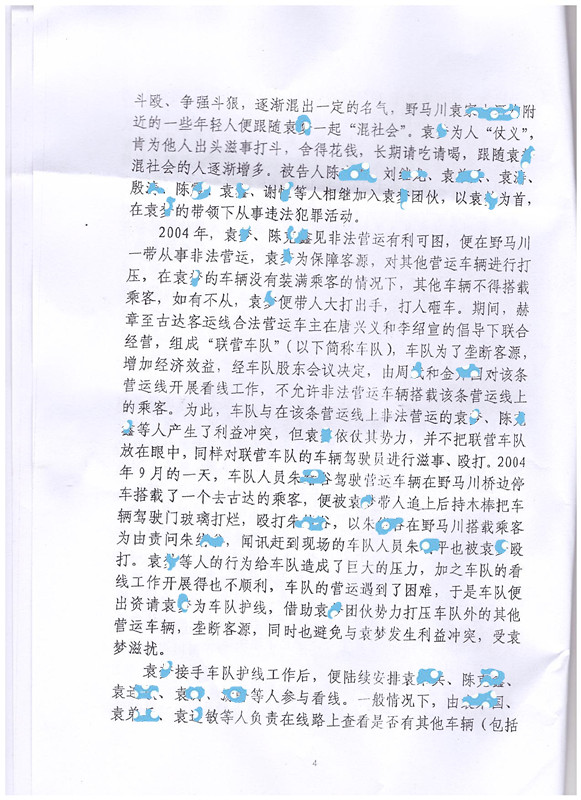 斗殴、争强斗狠，逐渐混出一定的名气，野马川袁家 附
近的一些年轻人便跟随袁 一起“混社会”。袁 为人“仗义”，
肯为他人出头滋事打斗，舍得花钱，长期请吃请喝，跟随袁
混社会的人逐渐增多。被告人陈 、刘 、袁 、袁 、
殷 、陈 、袁 、谢 等人相继加入袁 团伙，以袁 为首，
在袁 的带领下从事违法犯罪活动。
2004年，袁 、陈 见非法营运有利可图，便在野马川
一带从事非法营运，袁 为保障客源，对其他营运车辆进行打
压，在袁 的车辆没有装满乘客的情况下，其他车辆不得搭载
乘客，如有不从，袁 便带人大打出手，打人砸车。期间，赫
章至古达客运线合法营运车主在唐兴义和李绍宣的倡导下联合
经营，组成“联营车队”（以下简称车队），车队为了垄断客源，
增加经济效益，经车队股东会议决定，由周 和金 国对该条
营运线开展看线工作，不允许非法营运车辆搭载该条营运线上
的乘客。为此，车队与在该条营运线上非法营运的袁 、陈
等人产生了利益冲突，但袁 依仗其势力，并不把联营车队
放在眼中，同样对联营车队的车辆驾驶员进行滋事、殴打。2004
年9月的一天，车队人员朱 谷驾驶营运车辆在野马川桥边停
车搭载了一个去古达的乘客，便被袁 带人追上后持木棒把车
辆驾驶门玻璃打烂，殴打朱 谷，以朱 谷在野马川搭载乘客
为由责问朱 ，闻讯赶到现场的车队人员朱 平也被袁 殴
打。袁 等人的行为给车队造成了巨大的压力，加之车队的看
线工作开展得也不顺利，车队的营运遇到了困难，于是车队便
出资请袁 为车队护线，借助袁 团伙势力打压车队外的其他
营运车辆，垄断客源，同时也避免与袁梦发生利益冲突，受袁
梦滋扰。
袁 接手车队护线工作后，便陆续安排袁 兵、陈 、
袁 、袁 、 等人参与看线。一般情况下，由 国、
袁 、袁 敏等人负责在线路上查看是否有其他车辆（包括
4